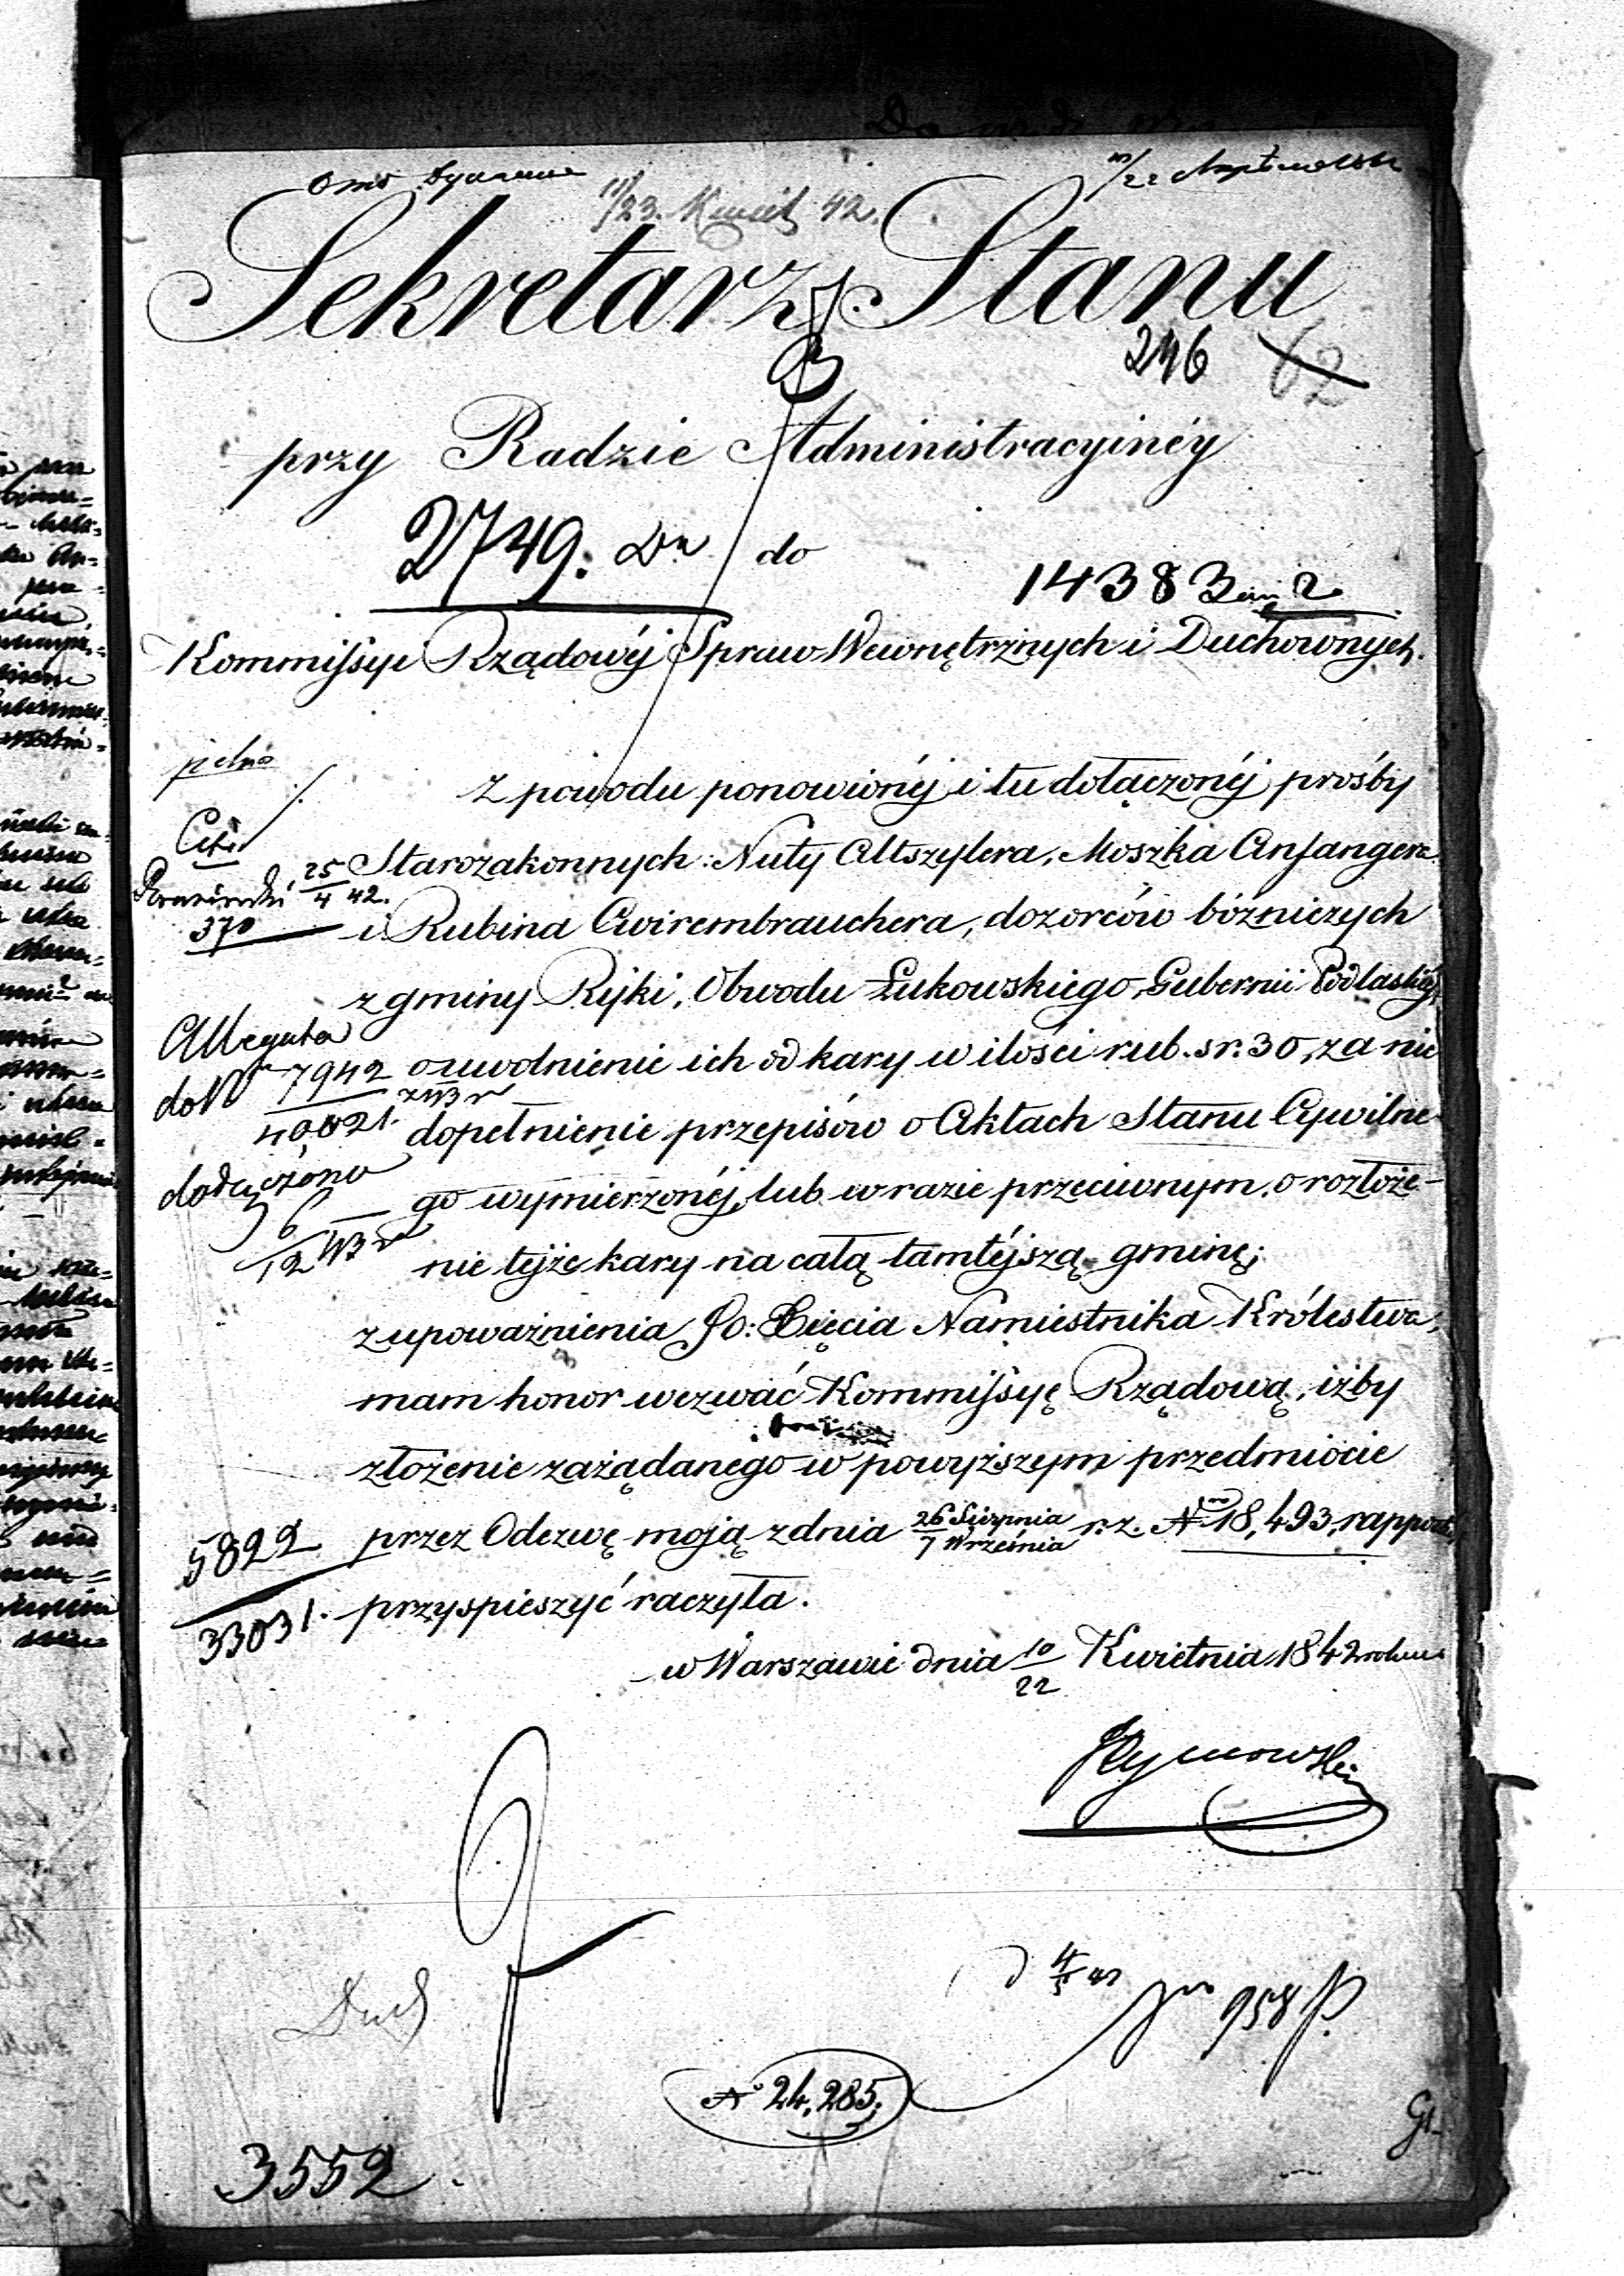 11/23. Kwiet 42.
Sekretarz Stanu
246 62
przy Radzie Administracyinéy
2749. Dn do
14383
Kommissyi Rządowéj Spraw Wewnętrznych i Duchownych.
pilno
Z powodu ponowionéj i tu dołączonéj prośby
Cito
Starozakonnych: Nuty Altszylera, Moszka Anfangera
25/4 42.
370
i Rubina Cwirembrauchera, dozorców bóżniczych
z gminy Ryki, Obwodu Łukowskiego, Gubernii Podlaskiéj
Allegata
o uwolnienie ich od kary w ilości rub. sr. 30, za nie
do Nr 7942
40021.
dopełnienie przepisów o Aktach Stanu Cywilne-
dołączono
go wymierzonéj, lub w razie przeciwnym, o rozłoże-
nie tejże kary na całą tamtéjszą gminę;
z upoważnienia JO: Xięcia Namiestnika Królestwa,
mam honor wezwać Kommissyę Rządową, iżby
złożenie zażądanego w powyższym przedmiocie
5822
33031.
przez Odezwę moją z dnia 26 Sierpnia/7 Września r. z. No 18,493, rapportu
przyspieszyć raczyła.
w Warszawie dnia 10/22 Kwietnia 1842 roku
Tymowski
Duch
958
No 24,285.
3552.